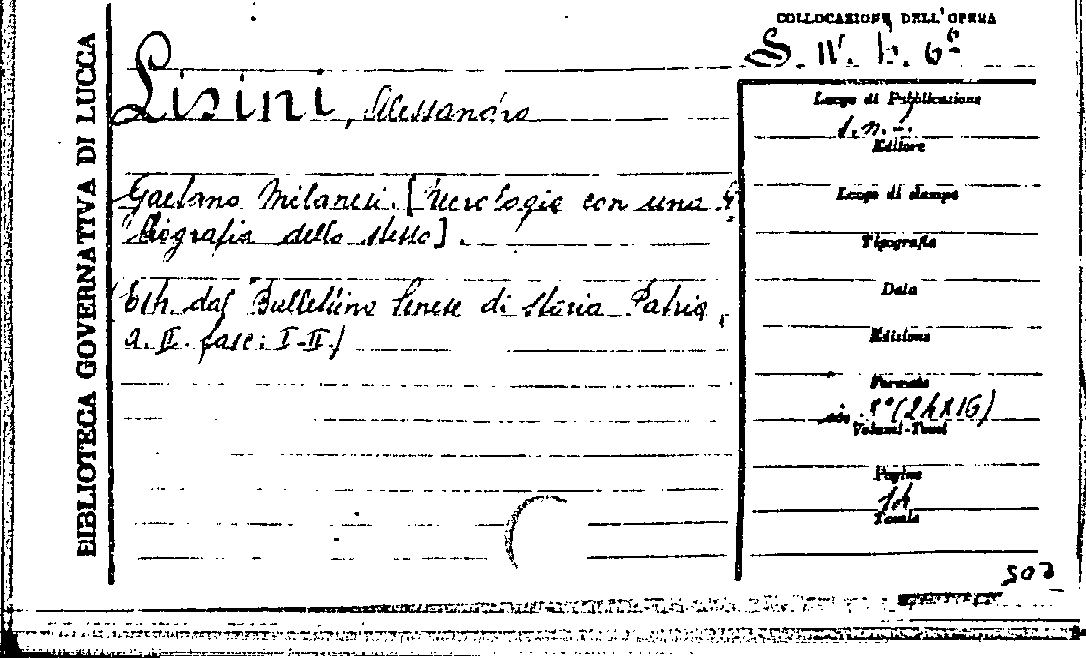 BIBLIOTECA GOVERNATIVA DI LUCCA
COLLOCAZIONE DELL'OPERA
S. IV. b. 6
Lisini, Alessandro
Gaetano Milanesi. [Necrologia con una
biografia dello stesso].
Estr. dal Bullettino Senese di Storia Patria,
a. II. fasc. I-II.)
Luogo di Pubblicazione
s.n.t.
Editore
Luogo di stampa
Tipografia
Data
Edizione
Formato
in 8° (24X16)
Volumi-Tomi
Pagine
14
Tavole